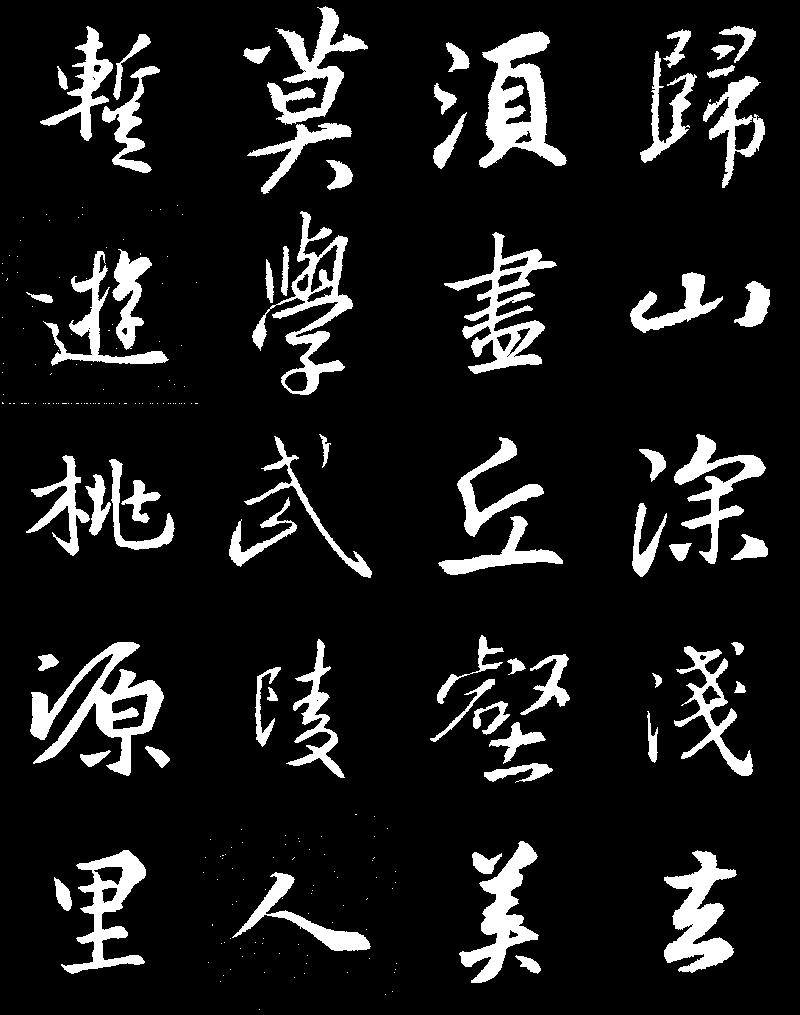 歸山深淺去
須盡丘壑美
莫學武陵人
暫遊桃源里